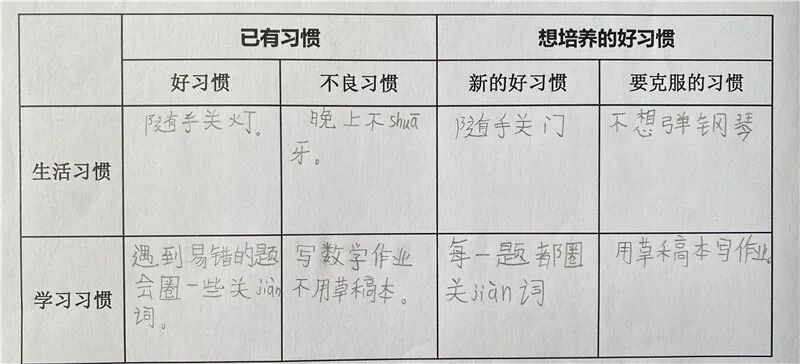 已有习惯 想培养的好习惯
好习惯 不良习惯 新的好习惯 要克服的习惯
生活习惯
随手关灯。
晚上不shuā
牙。
随手关门
不想弹钢琴
学习习惯
遇到易错的题
会圈一些关jiàn
词。
写数学作业
不用草稿本。
每一题都圈
关jiàn词
用草稿本写作业。